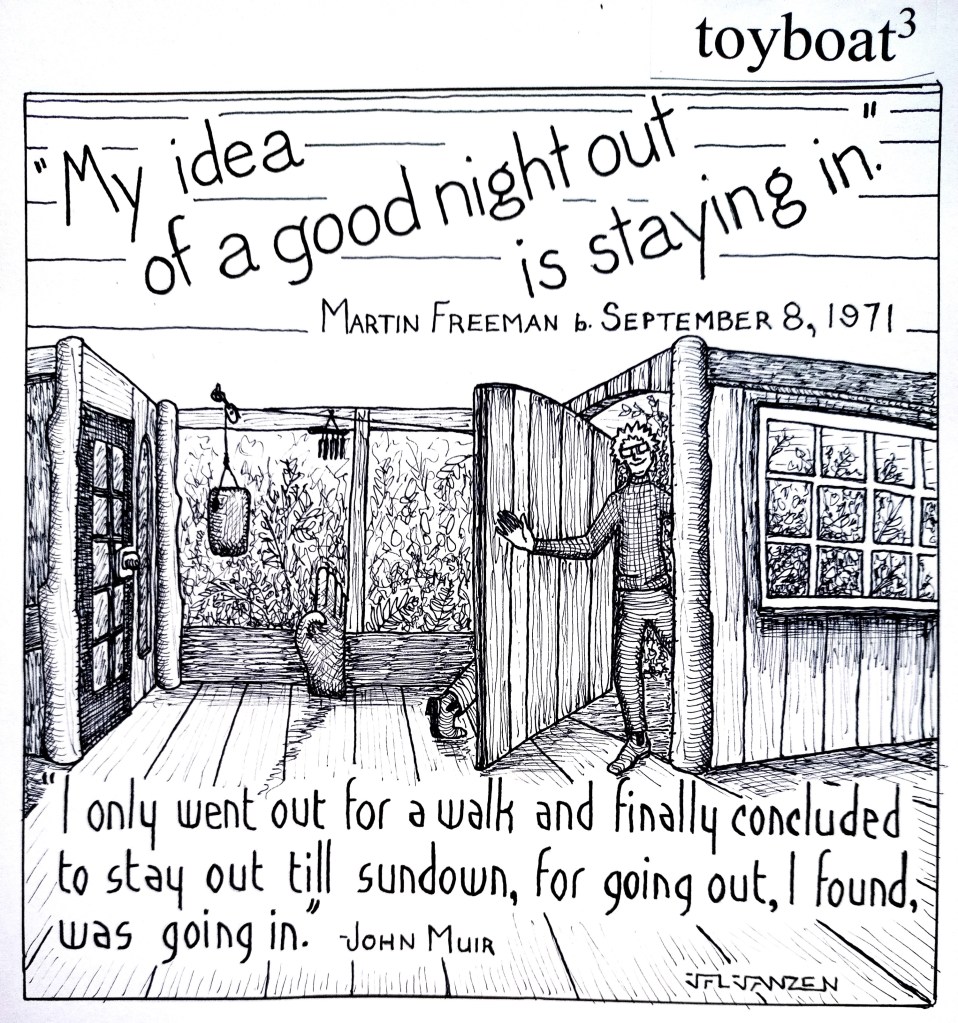 toyboat³
"My idea
of a good night out
is staying in."
MARTIN FREEMAN b. SEPTEMBER 8, 1971
"I only went out for a walk and finally concluded
to stay out till sundown, for going out, I found,
was going in." -JOHN MUIR
JFLJANZEN